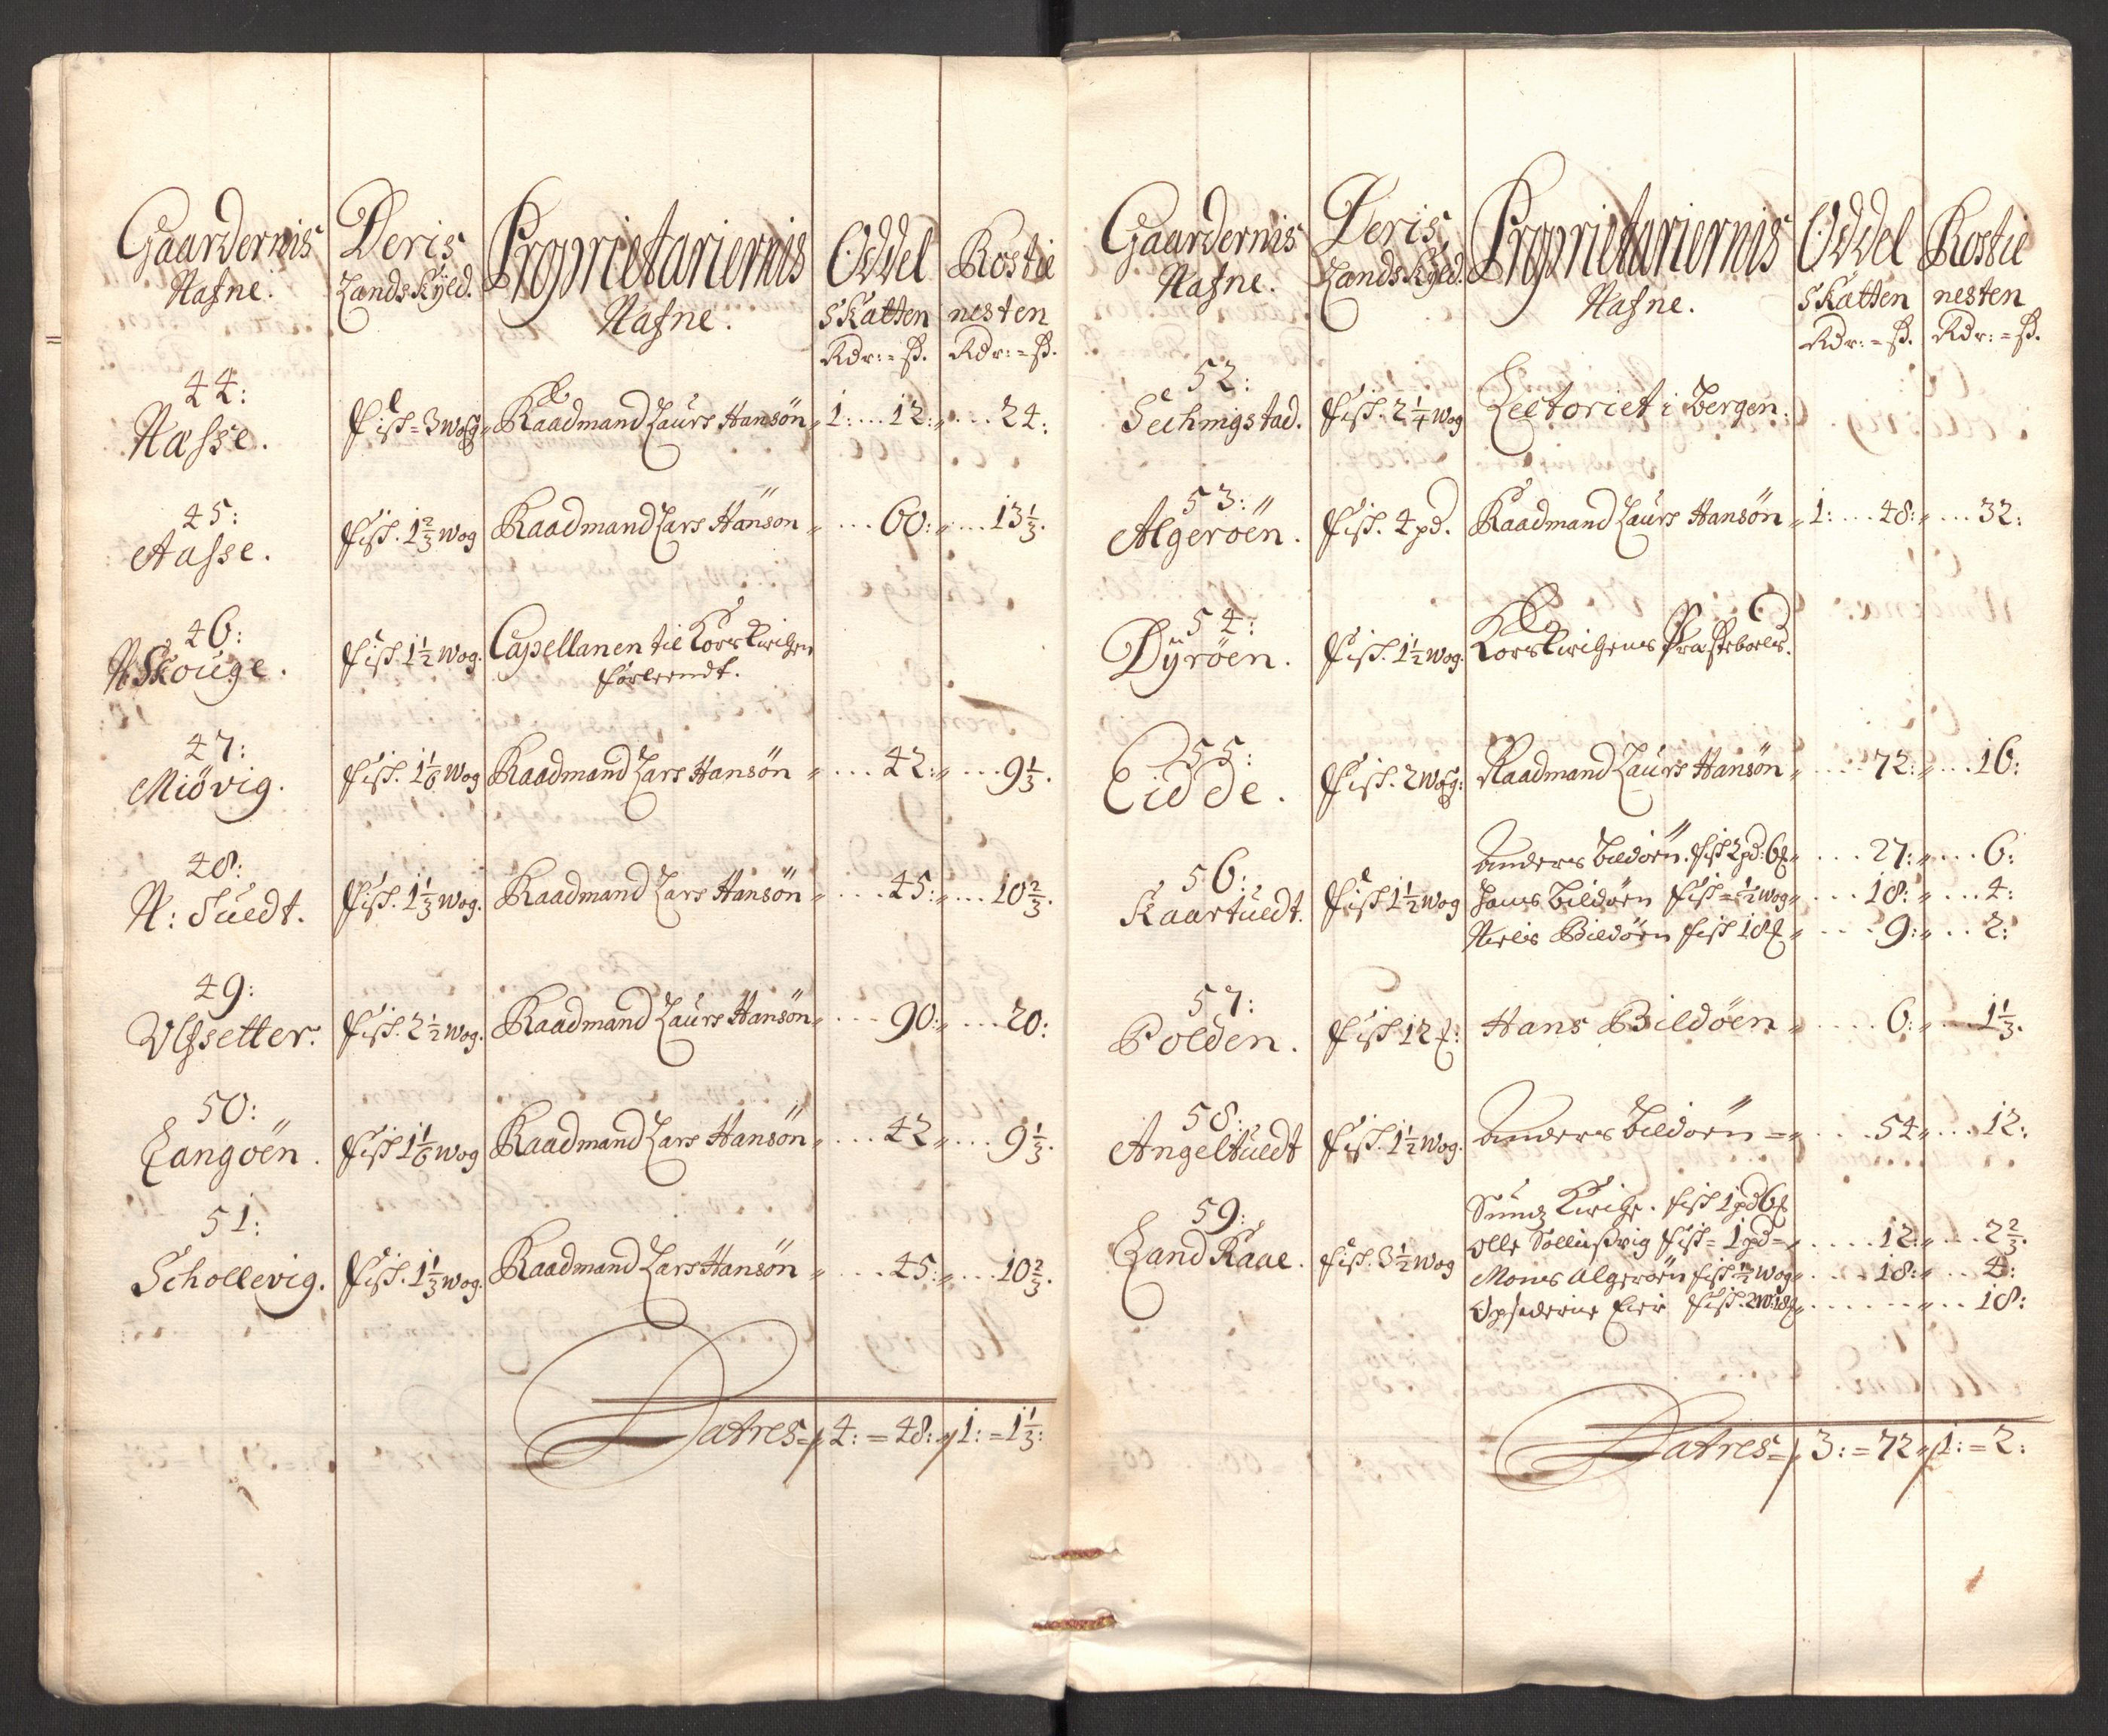 Gaardernis Nafne. Deris Landskÿld. Proprietariernis Nafne. Oddel Skatten Rdr: = ß. Rostie nesten Rdr: = ß.
44:
Næsse. Fisk = 3 wog Raadmand Laurs Hansön 1: ... 12: ... 24:
45:
Aasse. Fisk. 1 2/3 wog Raadmand Lars Hanson ... 60: ... 13 1/3.
46:
N Skouge. Fisk 1 1/2 wog. Capellanen til Kors Kirchen
forleendt.
47:
Miövig. Fisk. 1 1/6 wog Raadmand Lars Hansön ... 42: ... 9 1/3.
48:
N: Tuedt. Fisk. 1 1/3 wog. Raadmand Lars Hansön ... 45: ... 10 2/3.
49:
Ulfsetter. Fisk. 2 1/2 wog. Raadmand Laurs Hansön ... 90: ... 20:
50:
Langöen. Fisk 1 1/6 wog Raadmand Lars Hansön ... 42 ... 9 1/3.
51:
Schollevig. Fisk. 1 1/3 wog. Raadmand Lars Hansön ... 45: ... 10 2/3.
Latres = 4: = 48: 1: = 1 1/3:
Gaardernis Nafne. Deris Landskÿld. Proprietariernis Nafne. Oddel Skatten Rdr: = ß. Rostie nesten Rdr: = ß.
52:
Sechingstad. Fisk. 2 1/4 wog Lectoriet i Bergen.
53:
Algeröen. Fisk. 4 pd. Raadmand Laurs Hansön 1: ... 48: ... 32:
54:
Dÿröen. Fisk. 1 1/2 wog. Kors Kirchens Præsteboele.
55:
Eidde. Fisk. 2 wog: Raadmand Laurs Hansön ... 72: ... 16:
Anders Bildöen. fisk 2 pd: 6 ... 27: ... 6:
56:
Kaartuedt. Fisk 1 1/2 wog Hans Bildöen Fisk = 1/2 wog ... 18: ... 4:
Niels Bildöen fisk 18 ... 9: ... 2:
57:
Polden. Fisk 12 Hans Bildöen ... 6: ... 1 1/3.
58:
Angeltuedt Fisk. 1 1/2 wog. Anders Bildöen = ... 54 ... 12:
Sunds Kirche. fisk 1 pd 6
59:
Land Raae. Fisk. 3 1/2 wog Olle Sollusvig Fisk = 1 pd = ... 12: ... 2 2/3.
Mons Algeröen fisk 1/2 wog ... 18: ... 4:
Opsiderne Eier Fisk. 2 w: 18 ... 18:
Latres = 3: = 72 1: = 2: